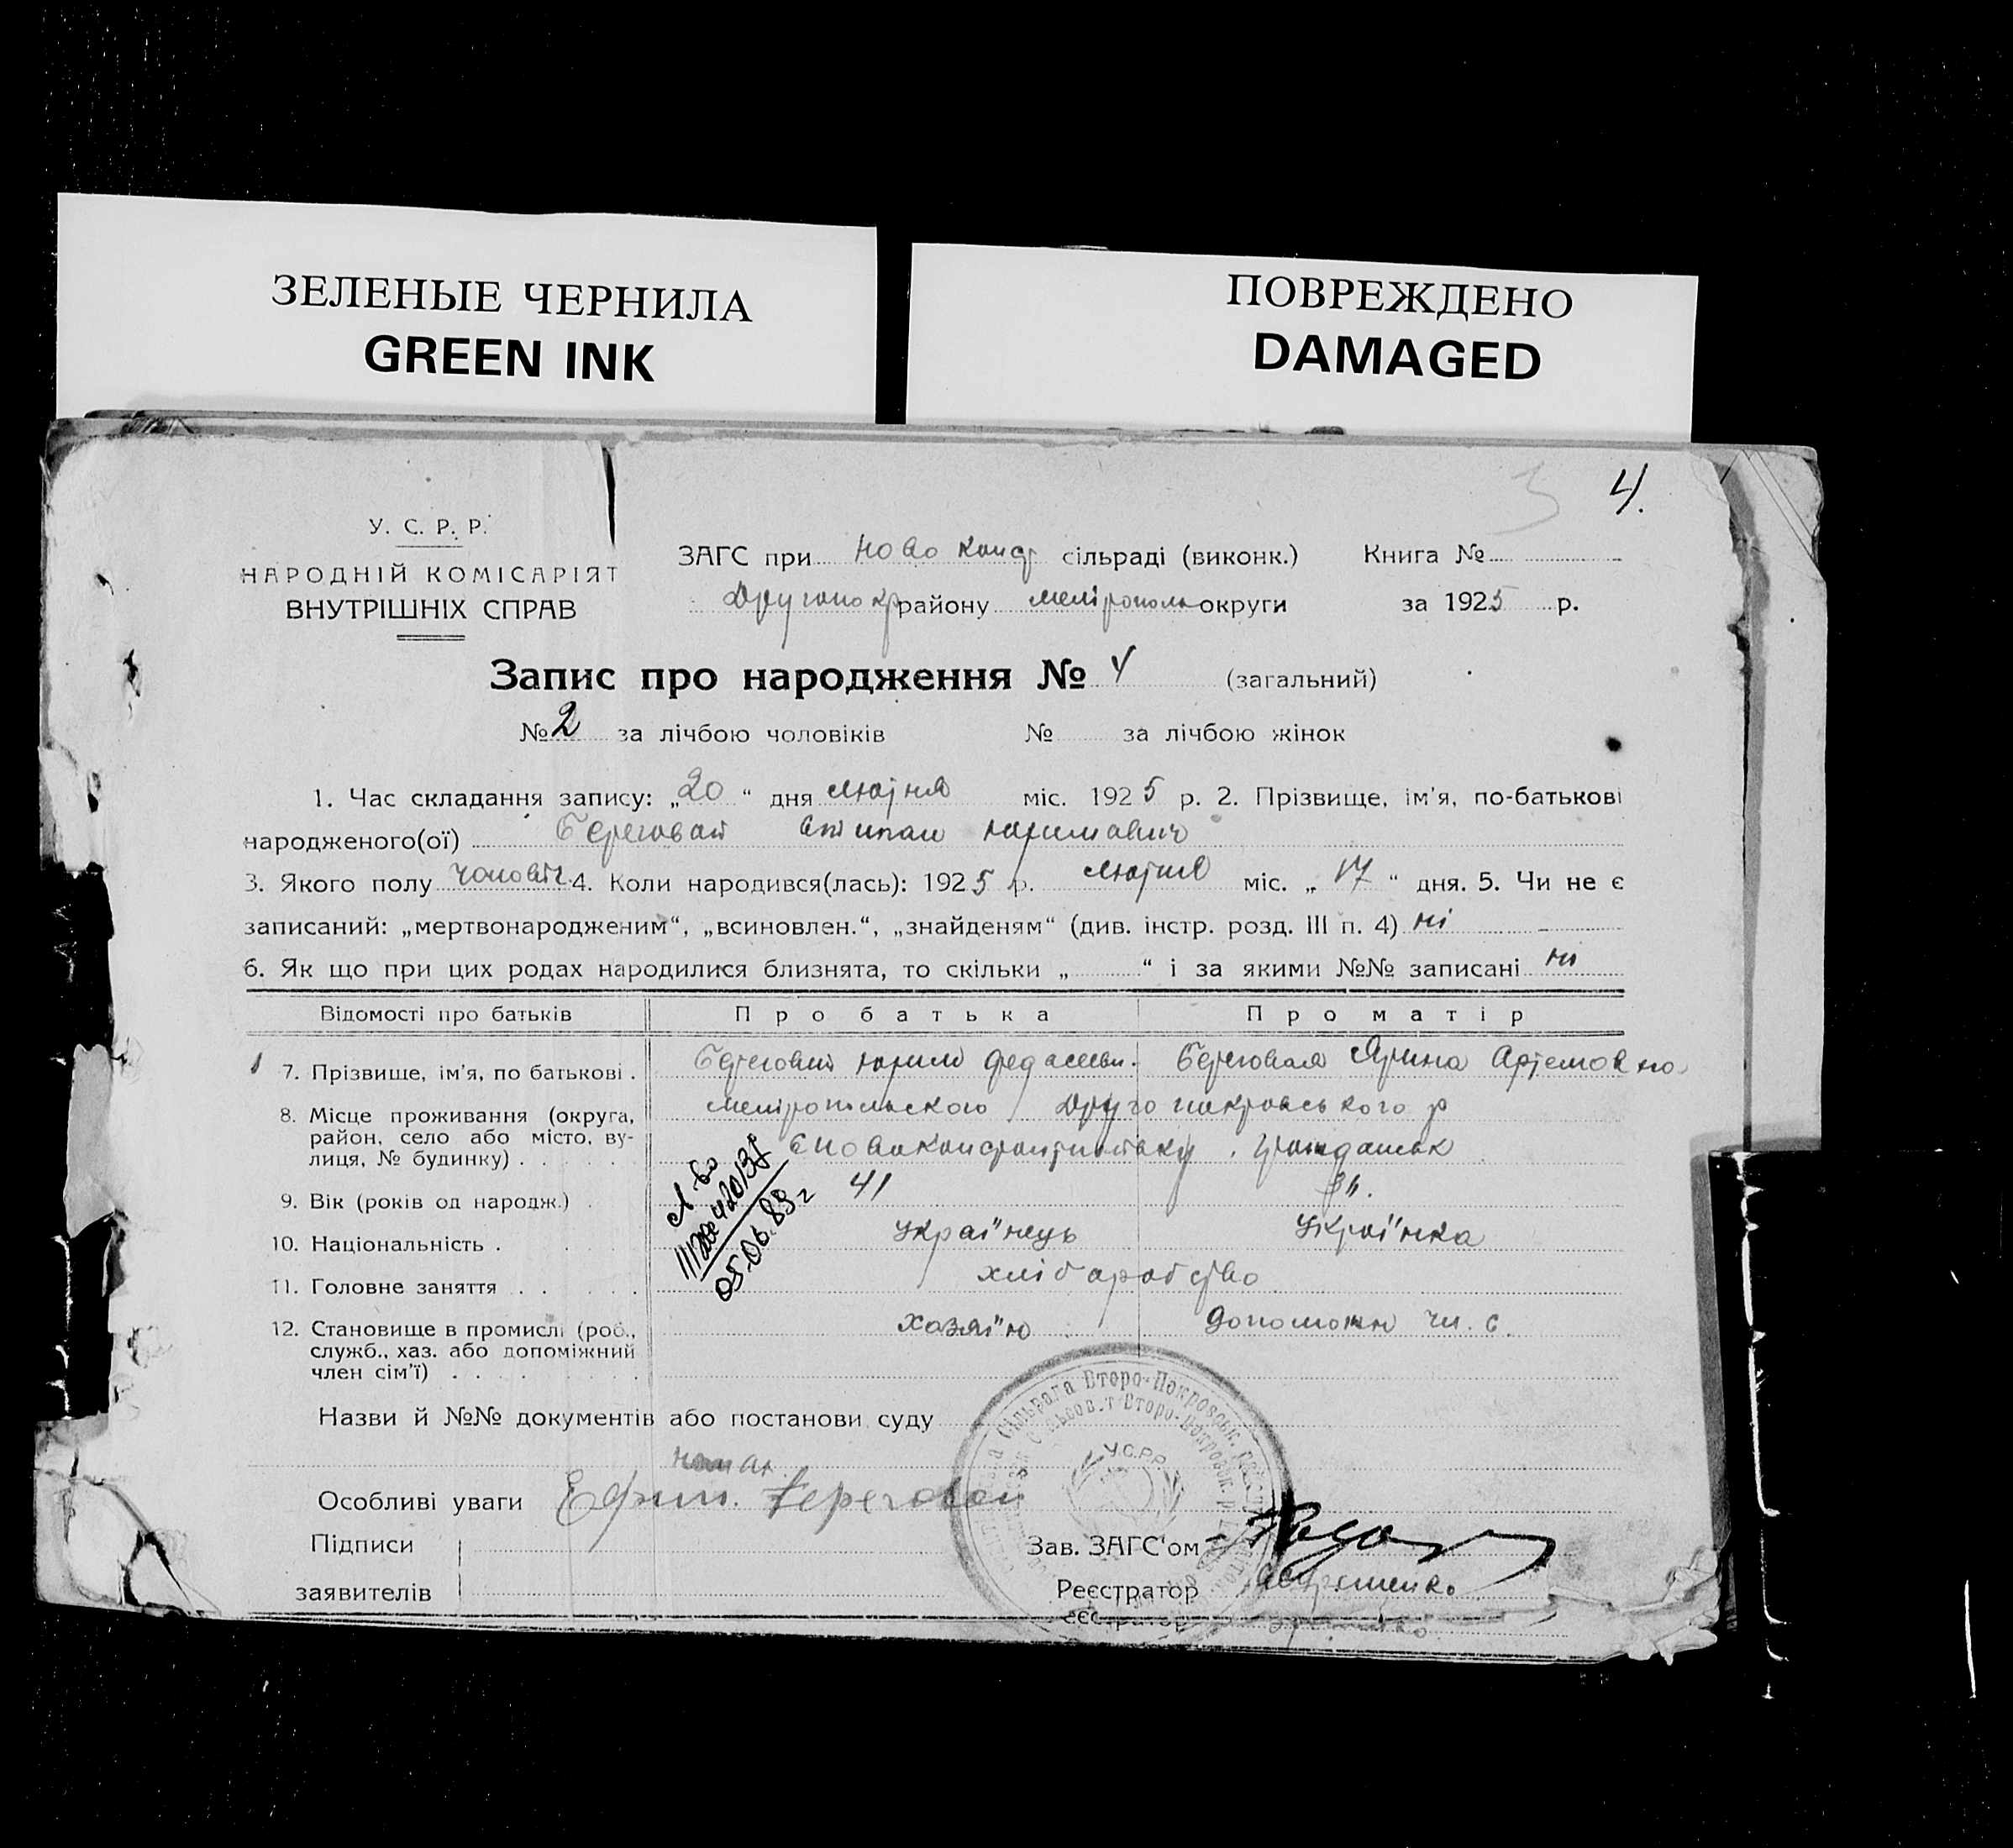 ЗЕЛЕНЫЕ ЧЕРНИЛА
GREEN INK
ПОВРЕЖДЕНО
DAMAGED
3 4.
У. С. Р. Р.
НАРОДНІЙ КОМІСАРІЯТ
ВНУТРІШНІХ СПРАВ
ЗАГС при Ново Конст сільраді (виконк.) Книга №
Другопокр району Мелітополь округи за 1925 р.
Запис про народження № 4 (загальний)
№ 2 за лічбою чоловіків № за лічбою жінок
1. Час складання запису: „20“ дня лютня міс. 1925 р. 2. Прізвище, ім'я, по-батькові
народженого(ої) Береговой
3. Якого полу чоловіч. 4. Коли народився(лась): 1925 р. лютня міс. „17“ дня. 5. Чи не є
записаний: „мертвонародженим“, „всиновлен.“, „знайденям“ (див. інстр. розд. III п. 4) ні
6. Як що при цих родах народилися близнята, то скільки „ “ і за якими №№ записані ні
Відомості про батьків Про батька Про матір
7. Прізвище, ім'я, по батькові . Береговий Береговая Ярина Артемовно
8. Місце проживання (округа, район, село або місто, вулиця, № будинку) . Мелітопольского Другопокровського р
9. Вік (років од народж.) . 41
10. Національність . Украї'нець Украї'нка
11. Головне заняття . хліборобство
12. Становище в промислі (роб., служб., хаз. або допоміжний член сім'ї) . хазяї'н чл. с.
05.06.89 г
Назви й №№ документів або постанови суду
немає
Особливі уваги Ефим. Береговой
Підписи
заявителів
Зав. ЗАГС'ом
Реєстратор
У.С.Р.Р.